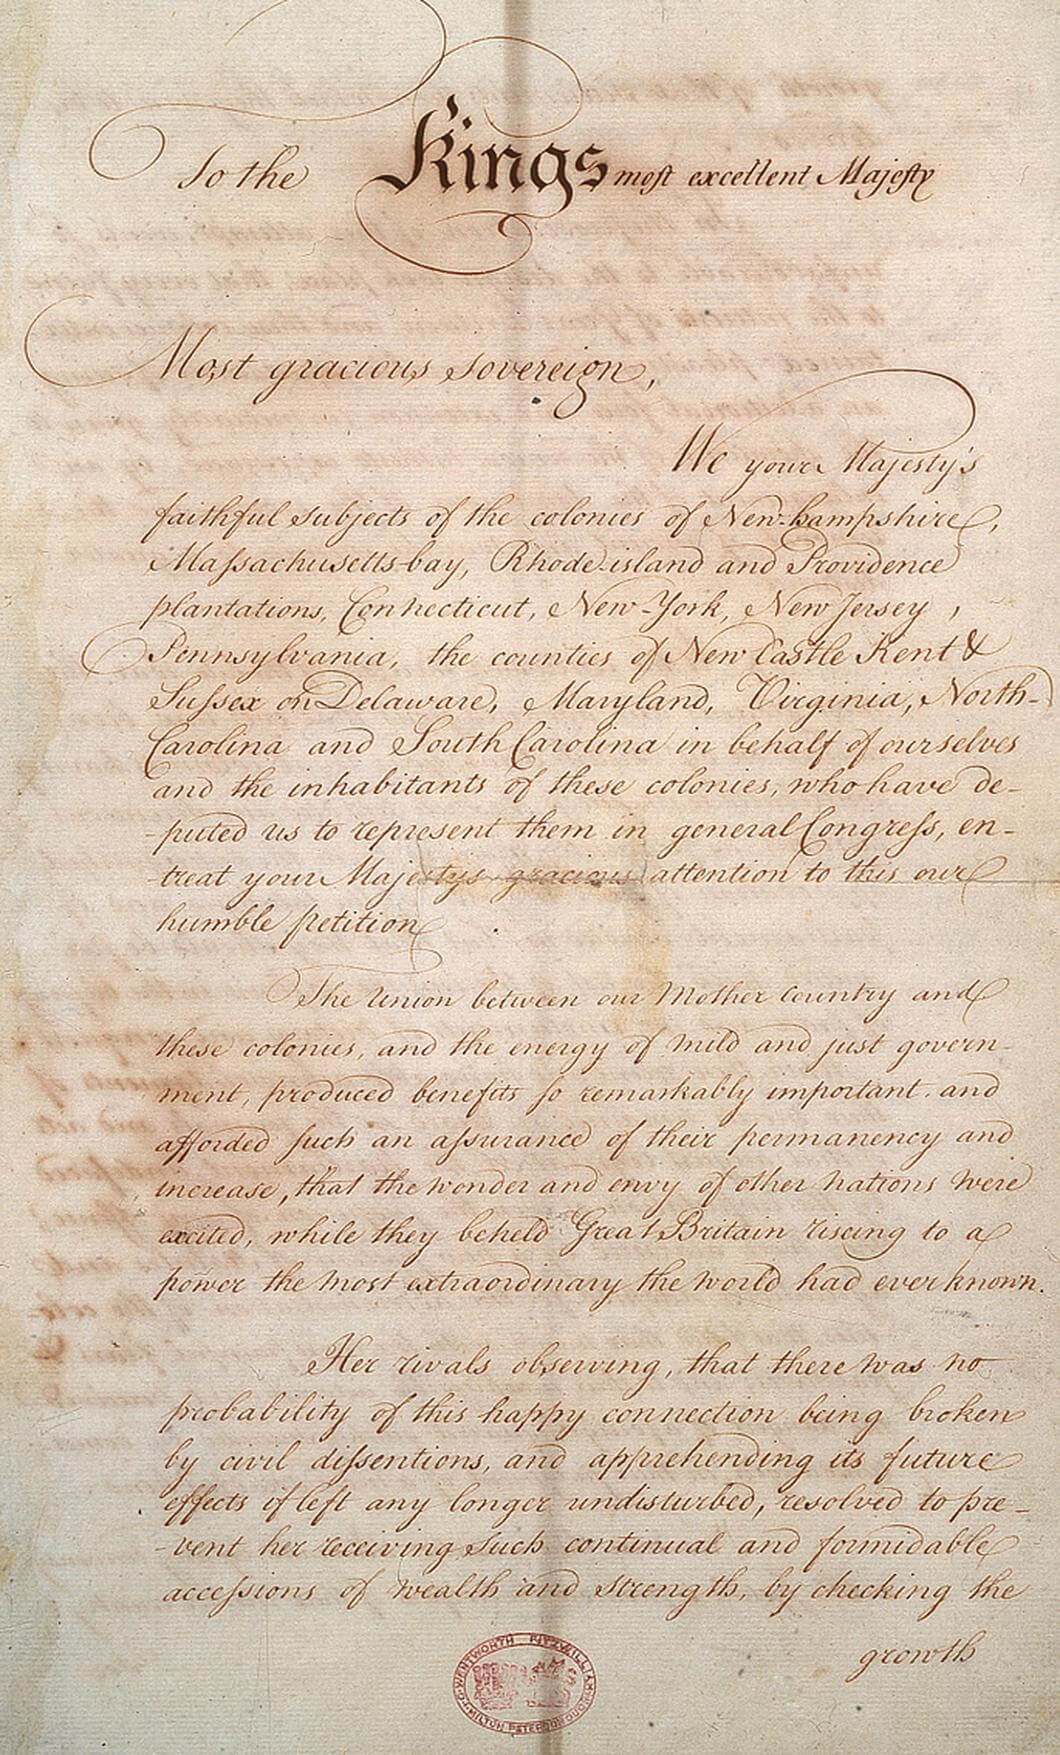 To the Kings most excellent Majesty
Most gracious sovereign,
We your Majesty's
faithful subjects of the colonies of New-hampshire,
Massachusetts-bay, Rhode-island and Providence
plantations, Connecticut, New-York, New Jersey,
Pennsylvania, the counties of New Castle Kent &
Sussex on Delaware, Maryland, Virginia, North-
Carolina and South Carolina in behalf of ourselves
and the inhabitants of these colonies, who have de-
-puted us to represent them in general Congress, en-
-treat your Majestys gracious attention to this our
humble petition
The Union between our Mother Country and
these colonies, and the energy of mild and just govern-
ment, produced benefits so remarkably important. and
afforded such an assurance of their permanency and
increase, that the wonder and envy of other nations were
excited, while they beheld Great Britain riseing to a
power the most extraordinary the world had ever known.
Her rivals observing, that there was no
probability of this happy connection being broken
by civil dissentions, and apprehending its future
effects if left any longer undisturbed, resolved to pre-
-vent her receiving such continual and formidable
accessions of wealth and strength, by checking the
growth
WENTWORTH FITZWILLIAM
MILTON PETERBOROUGH